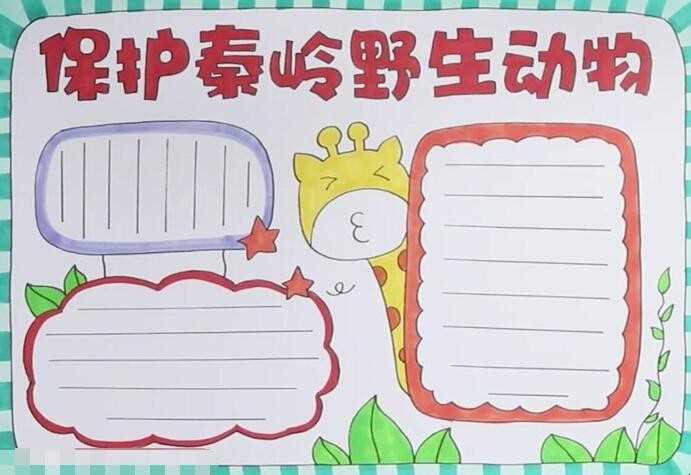 保护秦岭野生动物